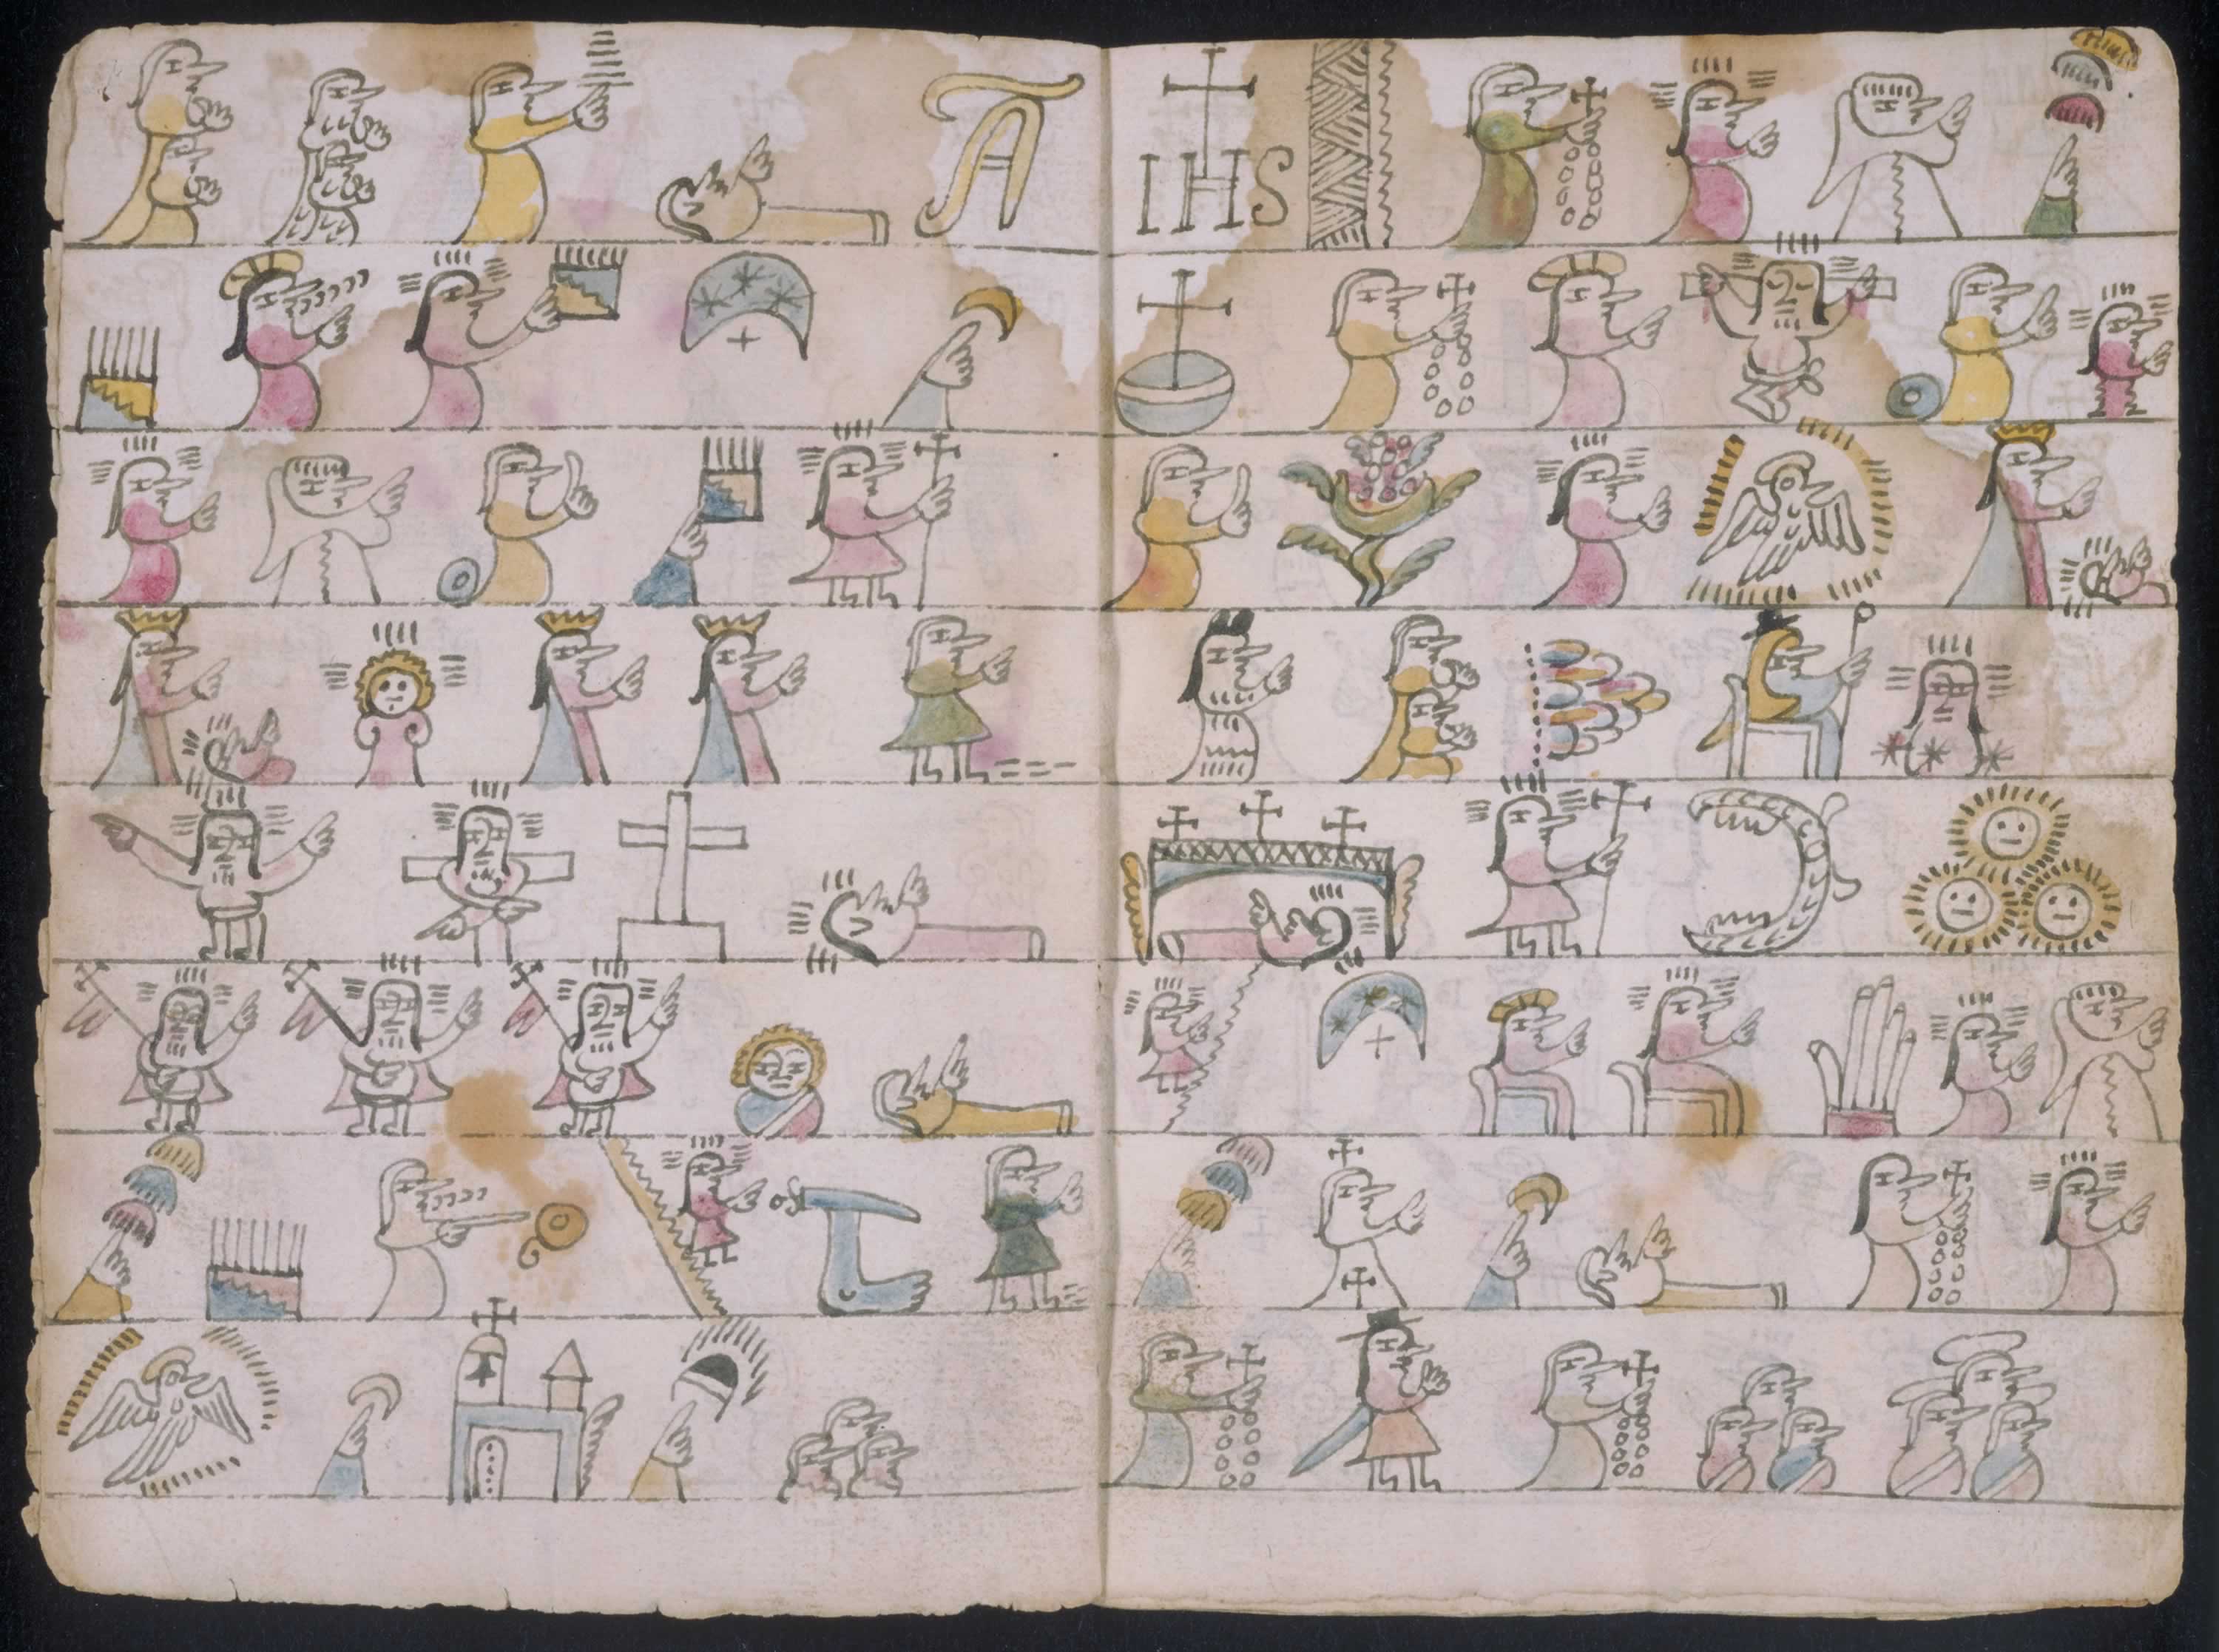 A
IHS